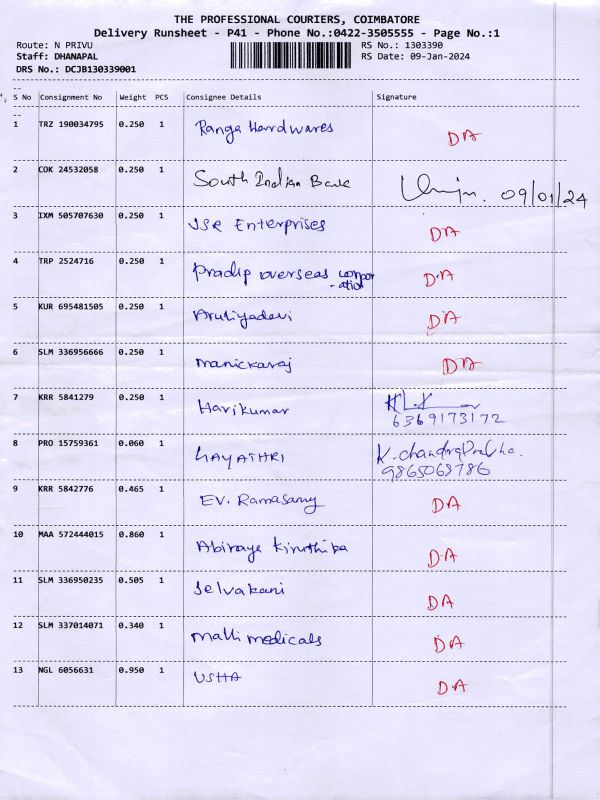 THE PROFESSIONAL COURIERS, COIMBATORE
Delivery Runsheet - P41 - Phone No.:0422-3505555 - Page No.:1
Route: N PRIVU RS No.: 1303390
Staff: DHANAPAL RS Date: 09-Jan-2024
DRS No.: DCJB130339001
S No Consignment No Weight PCS Consignee Details Signature
1 TRZ 190034795 0.250 1 Ranga Hardwares DA
2 COK 24532058 0.250 1 South Indian Bank 09/01/24
3 IXM 505707630 0.250 1 JSR Enterprises DA
4 TRP 2524716 0.250 1 Pradip overseas corpor DA
-ation
5 KUR 695481505 0.250 1 DA
6 SLM 336956666 0.250 1 manickaraj DA
7 KRR 5841279 0.250 1 Harikumar
6369173172
8 PRO 15759361 0.060 1 GAYATHRI K. chandraPrabha.
9865068786
9 KRR 5842776 0.465 1 EV. Ramasamy DA
10 MAA 572444015 0.860 1 Abinaya Kiruthika DA
11 SLM 336950235 0.505 1 Selvakani DA
12 SLM 337014071 0.340 1 malli medicals DA
13 NGL 6056631 0.950 1 USHA DA